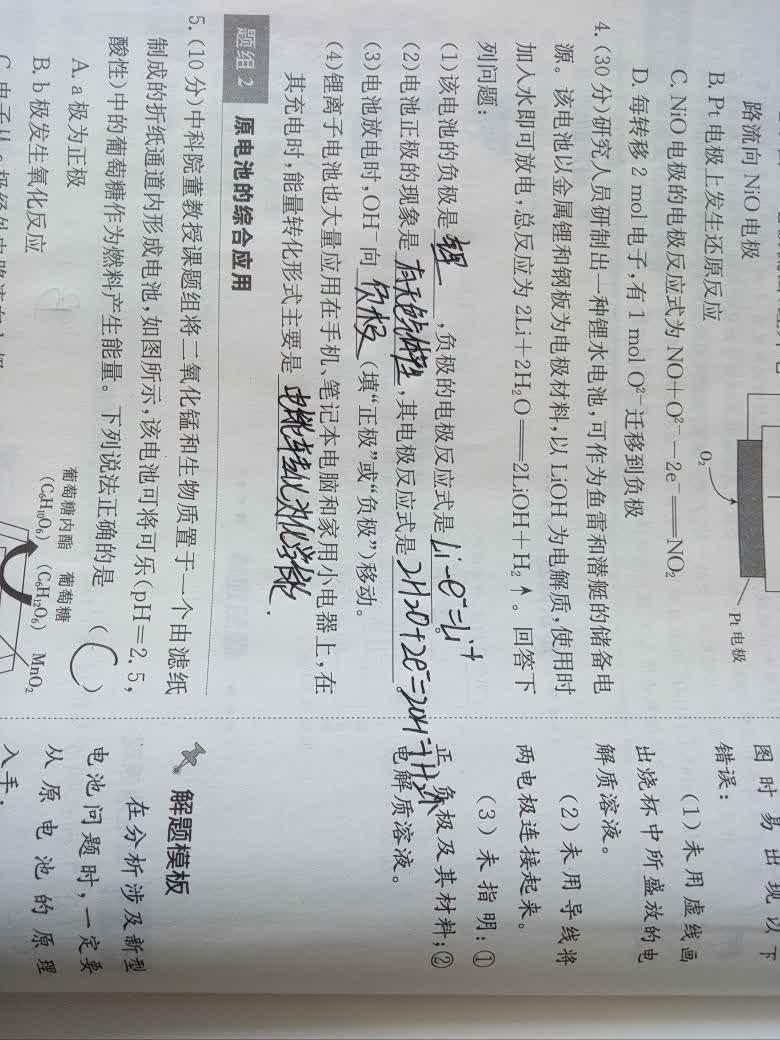 路流向 NiO 电极
B. Pt 电极上发生还原反应
C. NiO 电极的电极反应式为 NO+O²⁻-2e⁻══NO₂
D. 每转移 2 mol 电子,有 1 mol O²⁻迁移到负极
O₂
Pt 电极
4. (30 分)研究人员研制出一种锂水电池,可作为鱼雷和潜艇的储备电
源。该电池以金属锂和钢板为电极材料,以 LiOH 为电解质,使用时
加入水即可放电,总反应为 2Li+2H₂O══2LiOH+H₂↑。回答下
列问题:
(1)该电池的负极是 锂 ,负极的电极反应式是 Li-e⁻=Li⁺ 。
(2)电池正极的现象是 有无色气体产生 ,其电极反应式是 2H₂O+2e⁻=2OH⁻+H₂↑ 。
(3)电池放电时,OH⁻向 负极 (填“正极”或“负极”)移动。
(4)锂离子电池也大量应用在手机、笔记本电脑和家用小电器上,在
其充电时,能量转化形式主要是 电能转化为化学能 .
题组 2 原电池的综合应用
5. (10 分)中科院董教授课题组将二氧化锰和生物质置于一个由滤纸
制成的折纸通道内形成电池,如图所示,该电池可将可乐(pH=2.5,
酸性)中的葡萄糖作为燃料产生能量。下列说法正确的是 ( C )
A. a 极为正极
B. b 极发生氧化反应
葡萄糖内酯 葡萄糖
(C₆H₁₀O₆) (C₆H₁₂O₆) MnO₂
图时易出现以下
错误:
(1)未用虚线画
出烧杯中所盛放的电
解质溶液。
(2)未用导线将
两电极连接起来。
(3)未指明:①
正、负极及其材料;②
电解质溶液。
解题模板
在分析涉及新型
电池问题时,一定要
从原电池的原理
入手,